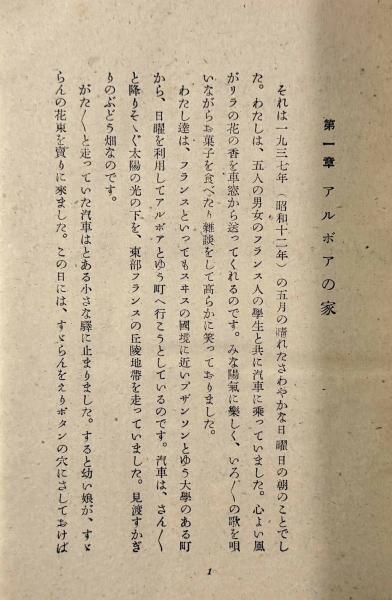 第一章 アルボアの家
それは一九三七年（昭和十二年）の五月の晴れたさわやかな日曜日の朝のことでし
た。わたしは、五人の男女のフランス人の學生と共に汽車に乘っていました。心よい風
がリラの花の香を車窓から送ってくれるのです。みな陽氣に樂しく、いろ〳〵の歌を唄
いながらお菓子を食べたり雜談をして高らかに笑っておりました。
わたし達は、フランスといってもスヰスの國境に近いブザンソンとゆう大學のある町
から、日曜を利用してアルボアとゆう町へ行こうとしているのです。汽車は、さん〳〵
と降りそゝぐ太陽の光の下を、東部フランスの丘陵地帶を走っていました。見渡すかぎ
りのぶどう畑なのです。
がた〳〵と走っていた汽車はとある小さな驛に止まりました。すると幼い娘が、すゞ
らんの花束を賣りに來ました。この日には、すゞらんをえりボタンの穴にさしておけば
1